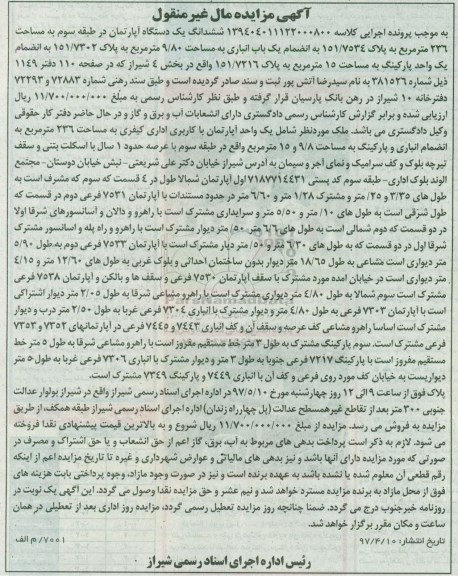 آگهی مزایده مال غیرمنقول
به موجب پرونده اجرایی کلاسه ۱۳۹۴۰۴۰۱۱۱۲۲۰۰۰۸۰۰ ششدانگ یک دستگاه آپارتمان در طبقه سوم به مساحت
۲۳۶ مترمربع به پلاک ۱۵۱/۷۵۳۴ به انضمام یک باب انباری به مساحت ۹/۸۰ مترمربع به پلاک ۱۵۱/۷۳۰۲ به انضمام
یک واحد پارکینگ به مساحت ۱۵ مترمربع به پلاک ۱۵۱/۷۲۱۶ واقع در بخش ۴ شیراز که در صفحه ۱۱۰ دفتر ۱۱۴۹
ذیل شماره ۳۸۱۵۲۶ به نام سیدرضا آتش پور ثبت و سند صادر گردیده است و طبق سند رهنی شماره ۷۲۸۸۳ و ۷۲۲۹۳
دفترخانه ۱۰ شیراز در رهن بانک پارسیان قرار گرفته و طبق نظر کارشناس رسمی به مبلغ ۱۱/۷۰۰/۰۰۰/۰۰۰ ریال
ارزیابی شده و برابر گزارش کارشناس رسمی دادگستری دارای انشعابات آب و برق و گاز و در حال حاضر دفتر کار حقوقی
وکیل دادگستری می باشد. ملک موردنظر شامل یک واحد آپارتمان با کاربری اداری کیفری به مساحت ۲۳۶ مترمربع به
انضمام انباری و پارکینگ به مساحت ۹/۸ و ۱۵ مترمربع واقع در طبقه سوم با عرصه حدود ۱ سال با اسکلت بتنی و سقف
تیرچه بلوک و کف سرامیک و نمای آجر و سیمان به آدرس شیراز خیابان دکتر علی شریعتی- نبش خیابان دوستان- مجتمع
الوند بلوک اداری- طبقه سوم کد پستی ۷۱۸۷۷۱۴۴۳۱ اول آپارتمان شمالا طول در ۴ قسمت که سوم که مشرف است به
طول های ۳/۳۵ و ۲۵/ متر و مشترک ۱/۲۸ متر و ۶/۶۰ متر در حدود مستندات با آپارتمان ۷۵۳۱ فرعی دوم در قسمت که
طول شرقی است به طول های ۱۰/ متر و ۵/۵۰ متر و سرایداری مشترک است با راهرو و دالان و آسانسورهای شرقا اولا
در دو قسمت که دوم شمالی است به طول های ۶/۶ متر ۵۰/ متر دیوار مشترک است با راهرو و راه پله و آسانسور مشترک
شرقا اول در دو قسمت که به طول های ۶/۳۰ متر و ۵۰/ متر دیار مشترک است با آپارتمان ۷۵۳۳ فرعی دوم به طول ۵/۹۰
متر دیواری است مشاعی به طول ۱۸/۶۵ متر دیوار بدون ساختمان احداثی و بلوک غربی به طول های ۱۲/۶۰ متر و ۴/۱۵
متر دیواری است در خیابان آمده مورد مشترک با سقف آپارتمان ۷۵۳۰ فرعی و سقف ها و بالکن و آپارتمان ۷۵۳۸ فرعی
مشترک است سوم شمالا به طول ۴/۸۰ متر دیواری مشترک است با راهرو مشاعی شرقا به طول ۲/۰۵ متر دیوار اشتراکی
است با آپارتمان ۷۳۰۳ فرعی به طول ۴/۸۰ متر و دیوار مشترک با انباری ۷۳۰۴ فرعی غربا به طول ۲/۵۰ متر درب و دیوار
مشترک است اساسا راهرو مشاعی کف عرصه و سقف آن و کف انباری ۷۴۴۳ و ۷۴۴۵ فرعی در آپارتمانهای ۷۳۵۲ و ۷۳۵۳
فرعی مشترک است. سوم پارکینگ مشترک به طول ۳ متر خط مستقیم مفروز است با راهرو مشاعی شرقا به طول ۵ متر خط
مستقیم مفروز است با پارکینگ ۷۲۱۷ فرعی جنوبا به طول ۳ متر و دیوار مشترک با انباری ۷۳۰۶ فرعی غربا به طول ۵ متر
دیواریست به خیابان کف مورد روی فرعی و کف آن با انباری ۷۴۴۹ و پارکینگ ۷۳۴۹ مشترک است.
پلاک فوق از ساعت ۹ الی ۱۲ روز چهارشنبه مورخ ۹۷/۵/۱۰ در اداره اجرای اسناد رسمی شیراز واقع در شیراز بولوار عدالت
جنوبی ۳۰۰ متر بعد از تقاطع غیرهمسطح عدالت (پل چهارراه زندان) اداره اجرای اسناد رسمی شیراز طبقه همکف، از طریق
مزایده به فروش می رسد. مزایده از مبلغ ۱۱/۷۰۰/۰۰۰/۰۰۰ ریال شروع و به بالاترین قیمت پیشنهادی نقدا فروخته
می شود. لازم به ذکر است پرداخت بدهی های مربوط به آب، برق، گاز اعم از حق انشعاب و یا حق اشتراک و مصرف در
صورتی که مورد مزایده دارای آنها باشد و نیز بدهی های مالیاتی و عوارض شهرداری و غیره تا تاریخ مزایده اعم از اینکه
رقم قطعی آن معلوم شده یا نشده باشد به عهده برنده است و نیز در صورت وجود مازاد، وجوه پرداختی بابت هزینه های
فوق از محل مازاد به برنده مزایده مسترد خواهد شد و نیم عشر و حق مزایده نقدا وصول می گردد. این آگهی یک نوبت در
روزنامه خبرجنوب درج می گردد. ضمنا چنانچه روز مزایده تعطیل رسمی گردد، مزایده روز اداری بعد از تعطیلی در همان
ساعت و مکان مقرر برگزار خواهد شد.
تاریخ انتشار: ۹۷/۴/۱۰ ۷۰۰۱/ م الف
رئیس اداره اجرای اسناد رسمی شیراز